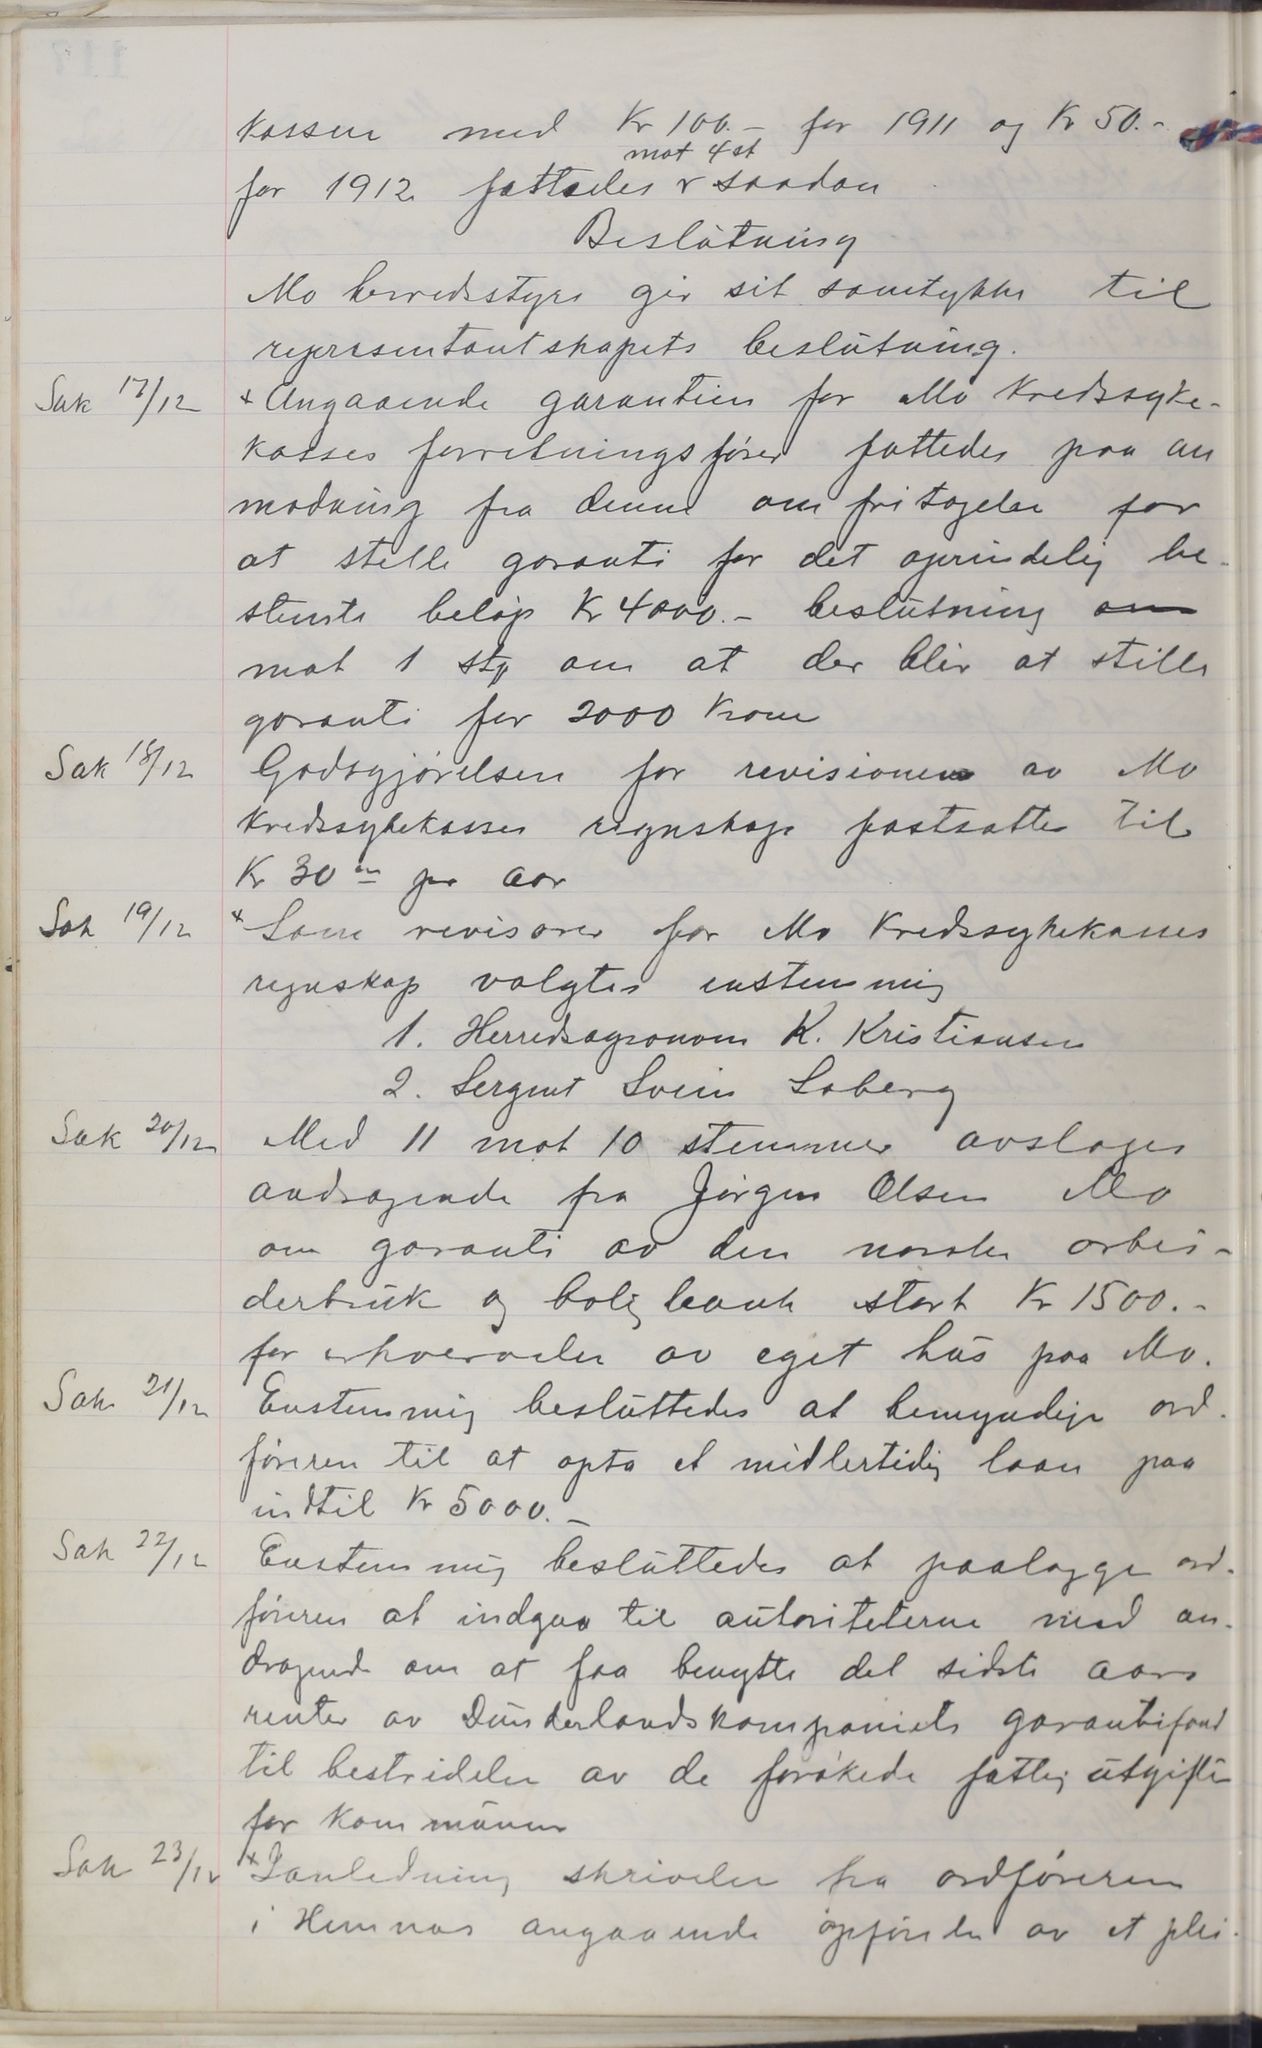 kassen med Kr 100.- for 1911 og Kr 50.-
mot 4 st
for 1912 fattedes v saadan
Beslutning
Mo herredsstyre gir sit samtykke til
representantskapets beslutning.
Sak 17/12 + Angaaende garantien for Mo Kredssyke-
kasses forretningsfører fattedes paa an
modning fra denne om fritagelse for
at stille garanti for det oprindelig be-
stemte beløp Kr 4000.- beslutning om
mot 1 st. om at der blir at stille
garanti for 2000 Kroner
Sak 18/12 Godtgjørelsen for revisionen av Mo
Kredssykekasses regnskap fastsattes til
Kr 30 pr aar
Sak 19/12 + Som revisorer for Mo Kredssykekasses
regnskap valgtes enstemmig
1. Herredsagronom K. Kristiansen
2. Sergent Svein Soberg
Sak 20/12 Med 11 mot 10 stemmer avsloges
andragende fra Jørgen Olsen Mo
om garanti av den norske arbei-
derbruk og bolig bank stort Kr 1500.-
for erhvervelse av eget hus paa Mo.
Sak 21/12 Enstemmig besluttedes at bemyndige ord-
føreren til at opta et midlertidig laan paa
indtil Kr 5000.-
Sak 22/12 Enstemmig besluttedes at paalægge ord-
føreren at indgaa til autoriteterne med an-
dragende om at faa benytte det sidste aars
renter av Dunderlandskompaniets garantifond
til bestridelse av de forøkede fattigutgifter
for kommunen
Sak 23/12 + I anledning skrivelse fra ordføreren
i Hemnes angaaende opførelse av et plei-